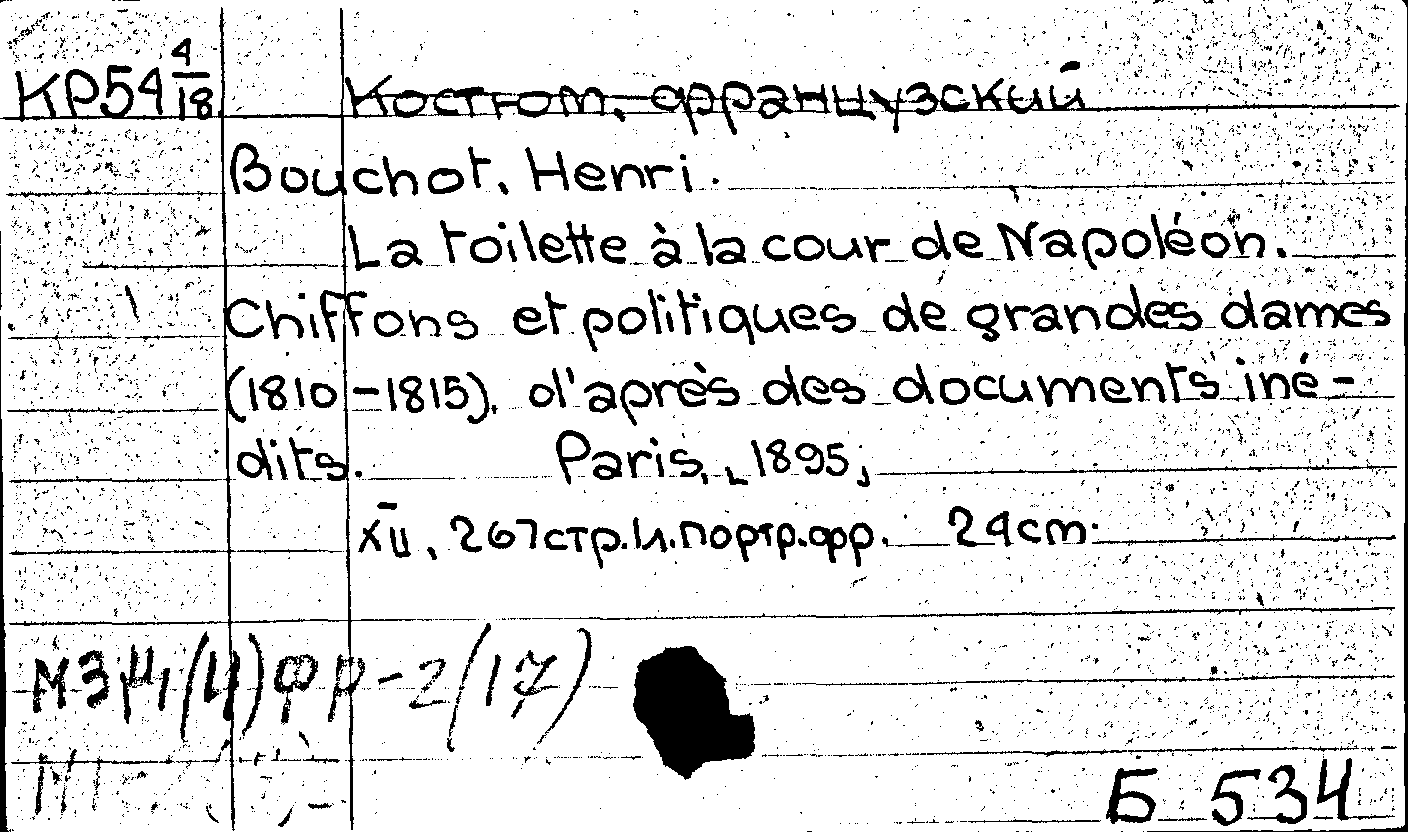 КР54 4/18 Костюм, французский
Bouchot, Henri.
La toilette à la cour de Napoléon.
Chiffons et politiques de grandes dames
(1810-1815), d'après des documents iné-
dits. Paris, , 1895;
XII, 267 стр. и. портр. фр. 24 cm.
МЗЧ(4)ФР-2(17)
Б 534